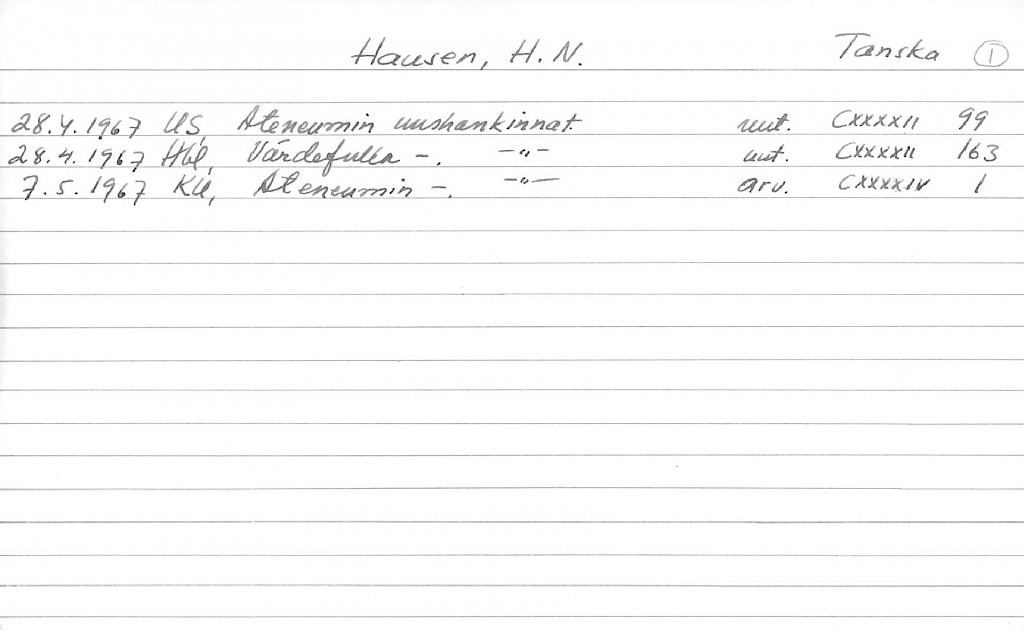 Hausen, H.N. Tanska 1
28.4.1967 US, Ateneumin uushankinnat. uut. CXXXXII 99
28.4.1967 Hbl, Värdefulla -. -"- uut. CXXXXII 163
7.5.1967 KU, Ateneumin -. -"- arv. CXXXXIV 1